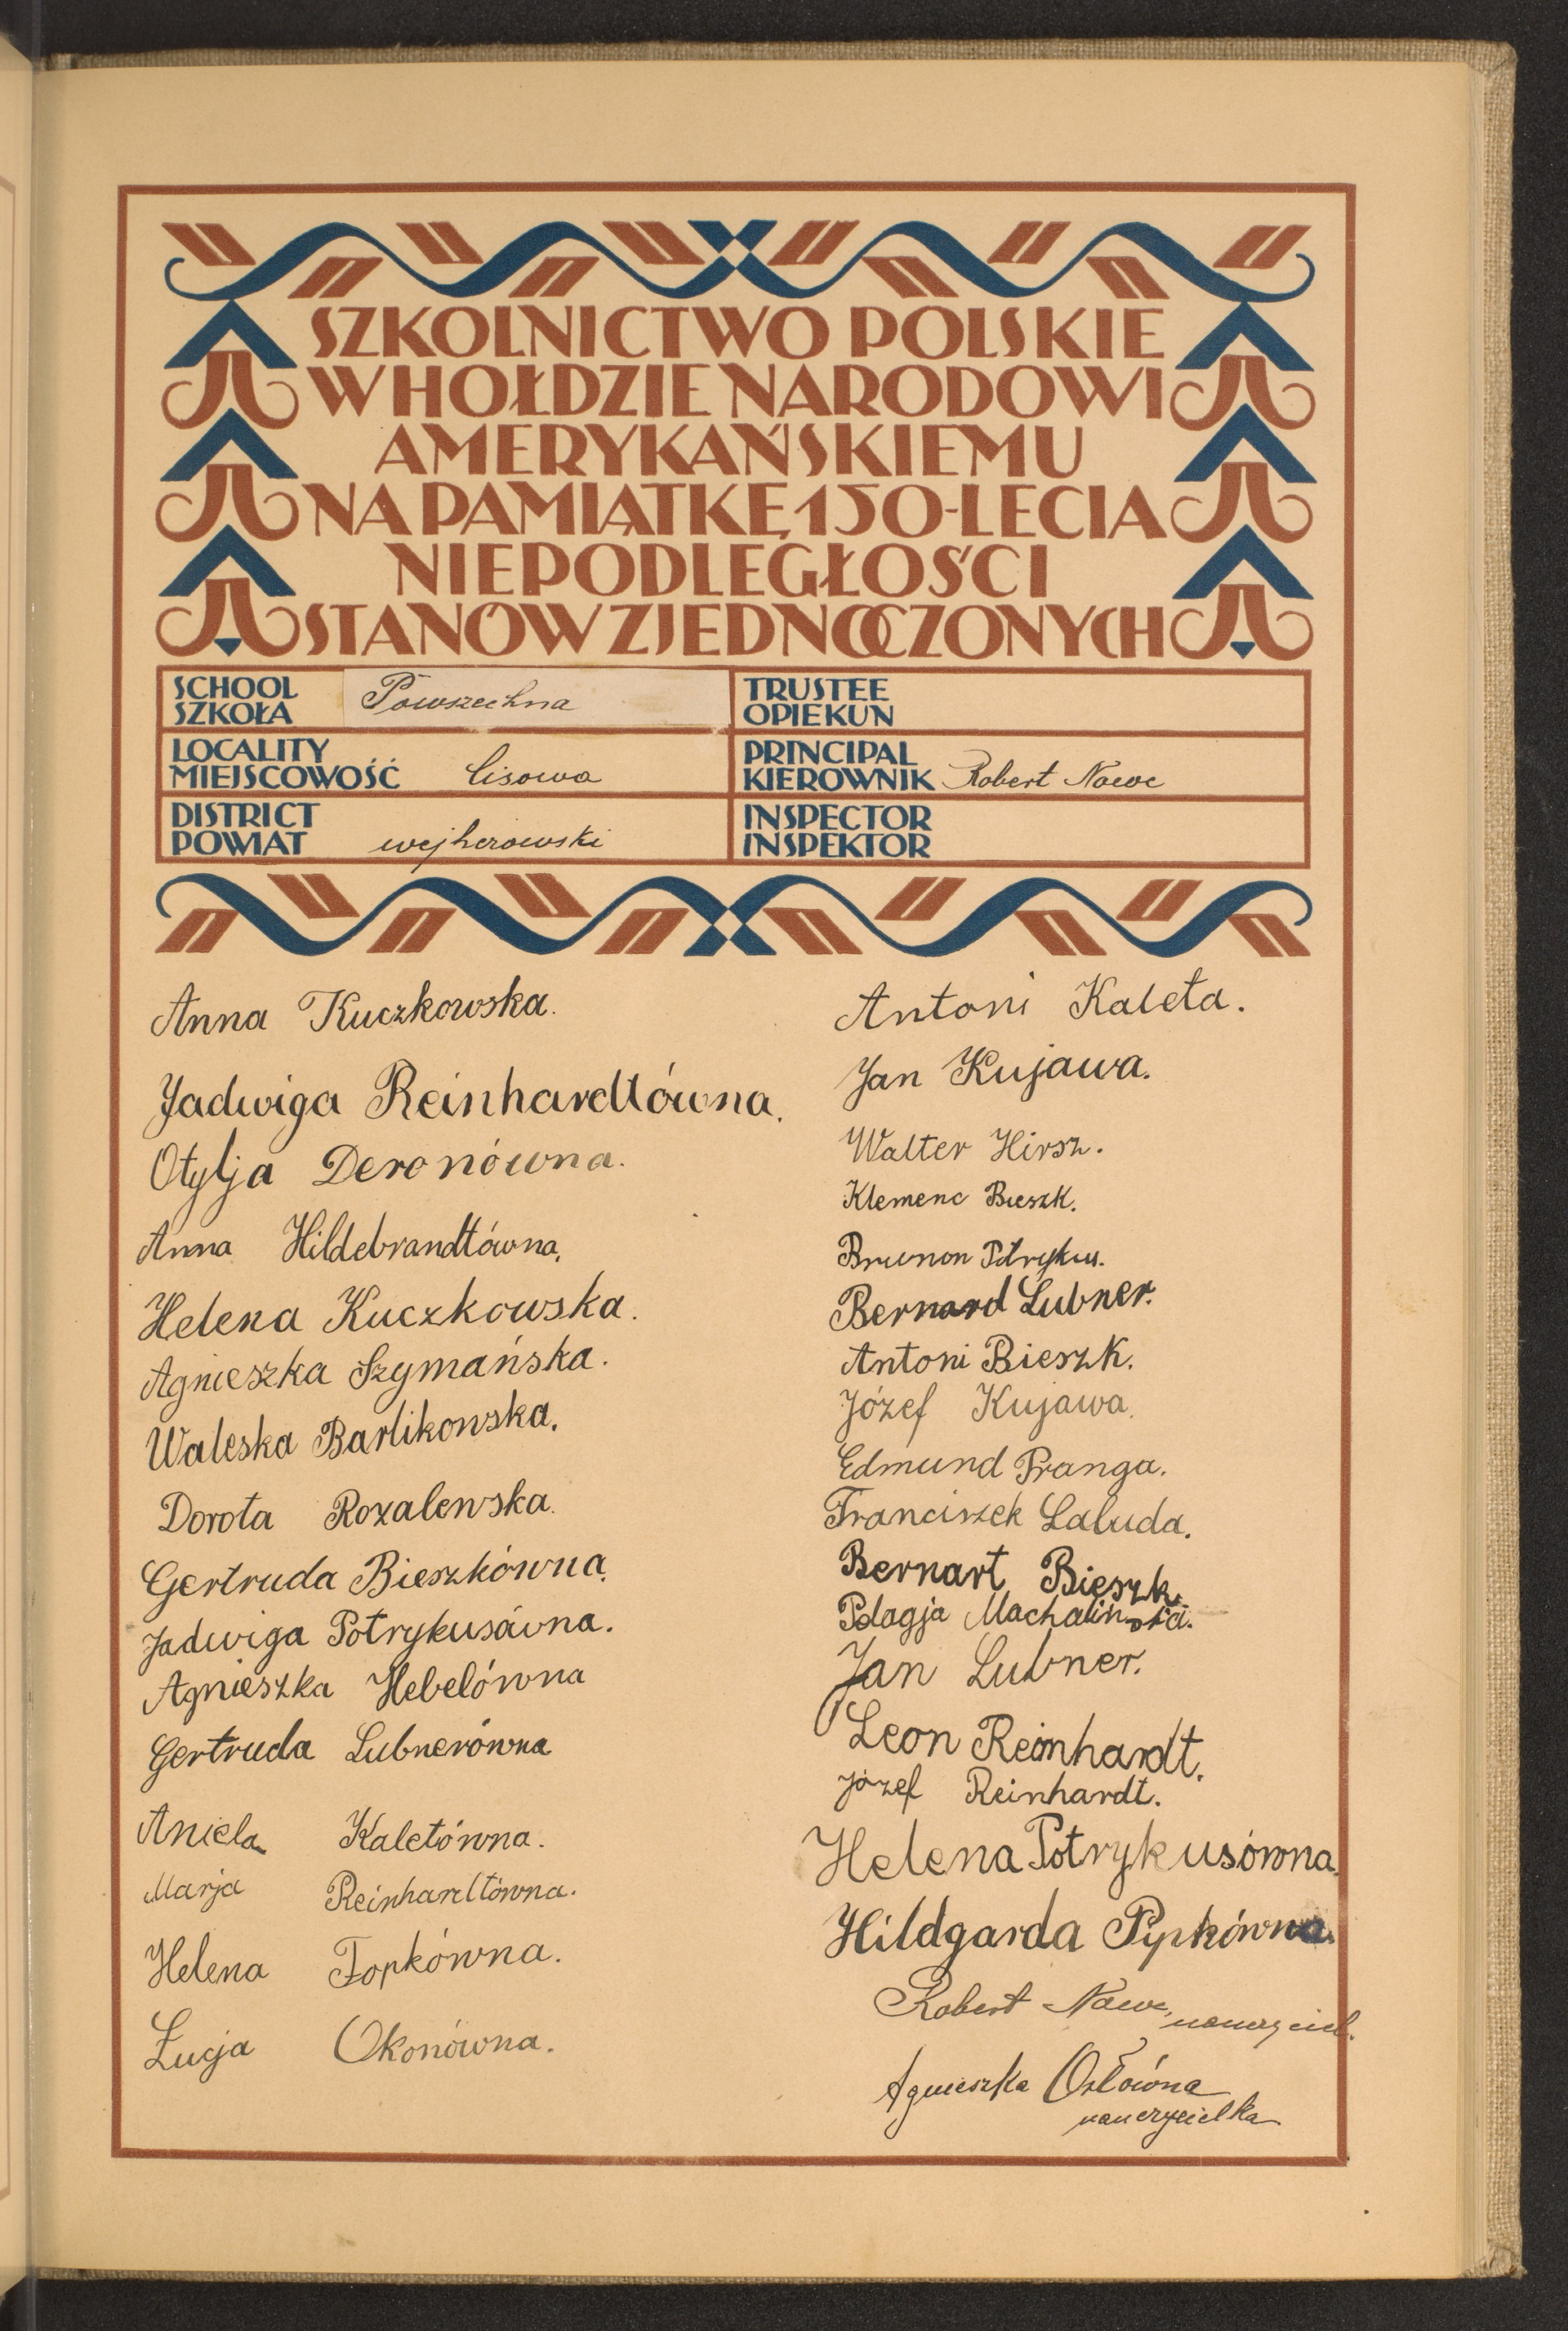 SZKOLNICTWO POLSKIE
W HOŁDZIE NARODOWI
AMERYKAŃSKIEMU
NA PAMIĄTKĘ 150-LECIA
NIEPODLEGŁOŚCI
STANÓW ZJEDNOCZONYCH
SCHOOL
SZKOŁA Powszechna
TRUSTEE
OPIEKUN
LOCALITY
MIEJSCOWOŚĆ Lisowa
PRINCIPAL
KIEROWNIK Robert Nawe
DISTRICT
POWIAT wejherowski
INSPECTOR
INSPEKTOR
Anna Kuczkowska.
Jadwiga Reinhardtówna.
Otylja Deronówna.
Anna Hildebrandtówna.
Helena Kuczkowska.
Agnieszka Szymańska.
Waleska Barlikowska.
Dorota Rozalewska.
Gertruda Bieszkówna.
Jadwiga Potrykusówna.
Agnieszka Hebelówna
Gertruda Lubnerówna
Aniela Kaletówna.
Marja Reinhardtówna.
Helena Fopkówna.
Łucja Okonówna.
Antoni Kaleta.
Jan Kujawa.
Walter Hirsz.
Klemenc Bieszk.
Brunon Potrykus.
Bernard Lubner.
Antoni Bieszk.
Józef Kujawa.
Edmund Pranga.
Franciszek Labuda.
Bernart Bieszk.
Pelagja
Jan Lubner.
Leon Reinhardt.
Józef Reinhardt.
Helena Potrykusówna.
Hildgarda Pypkówna.
Robert Nawe, nauczyciel.
Agnieszka
nauczycielka